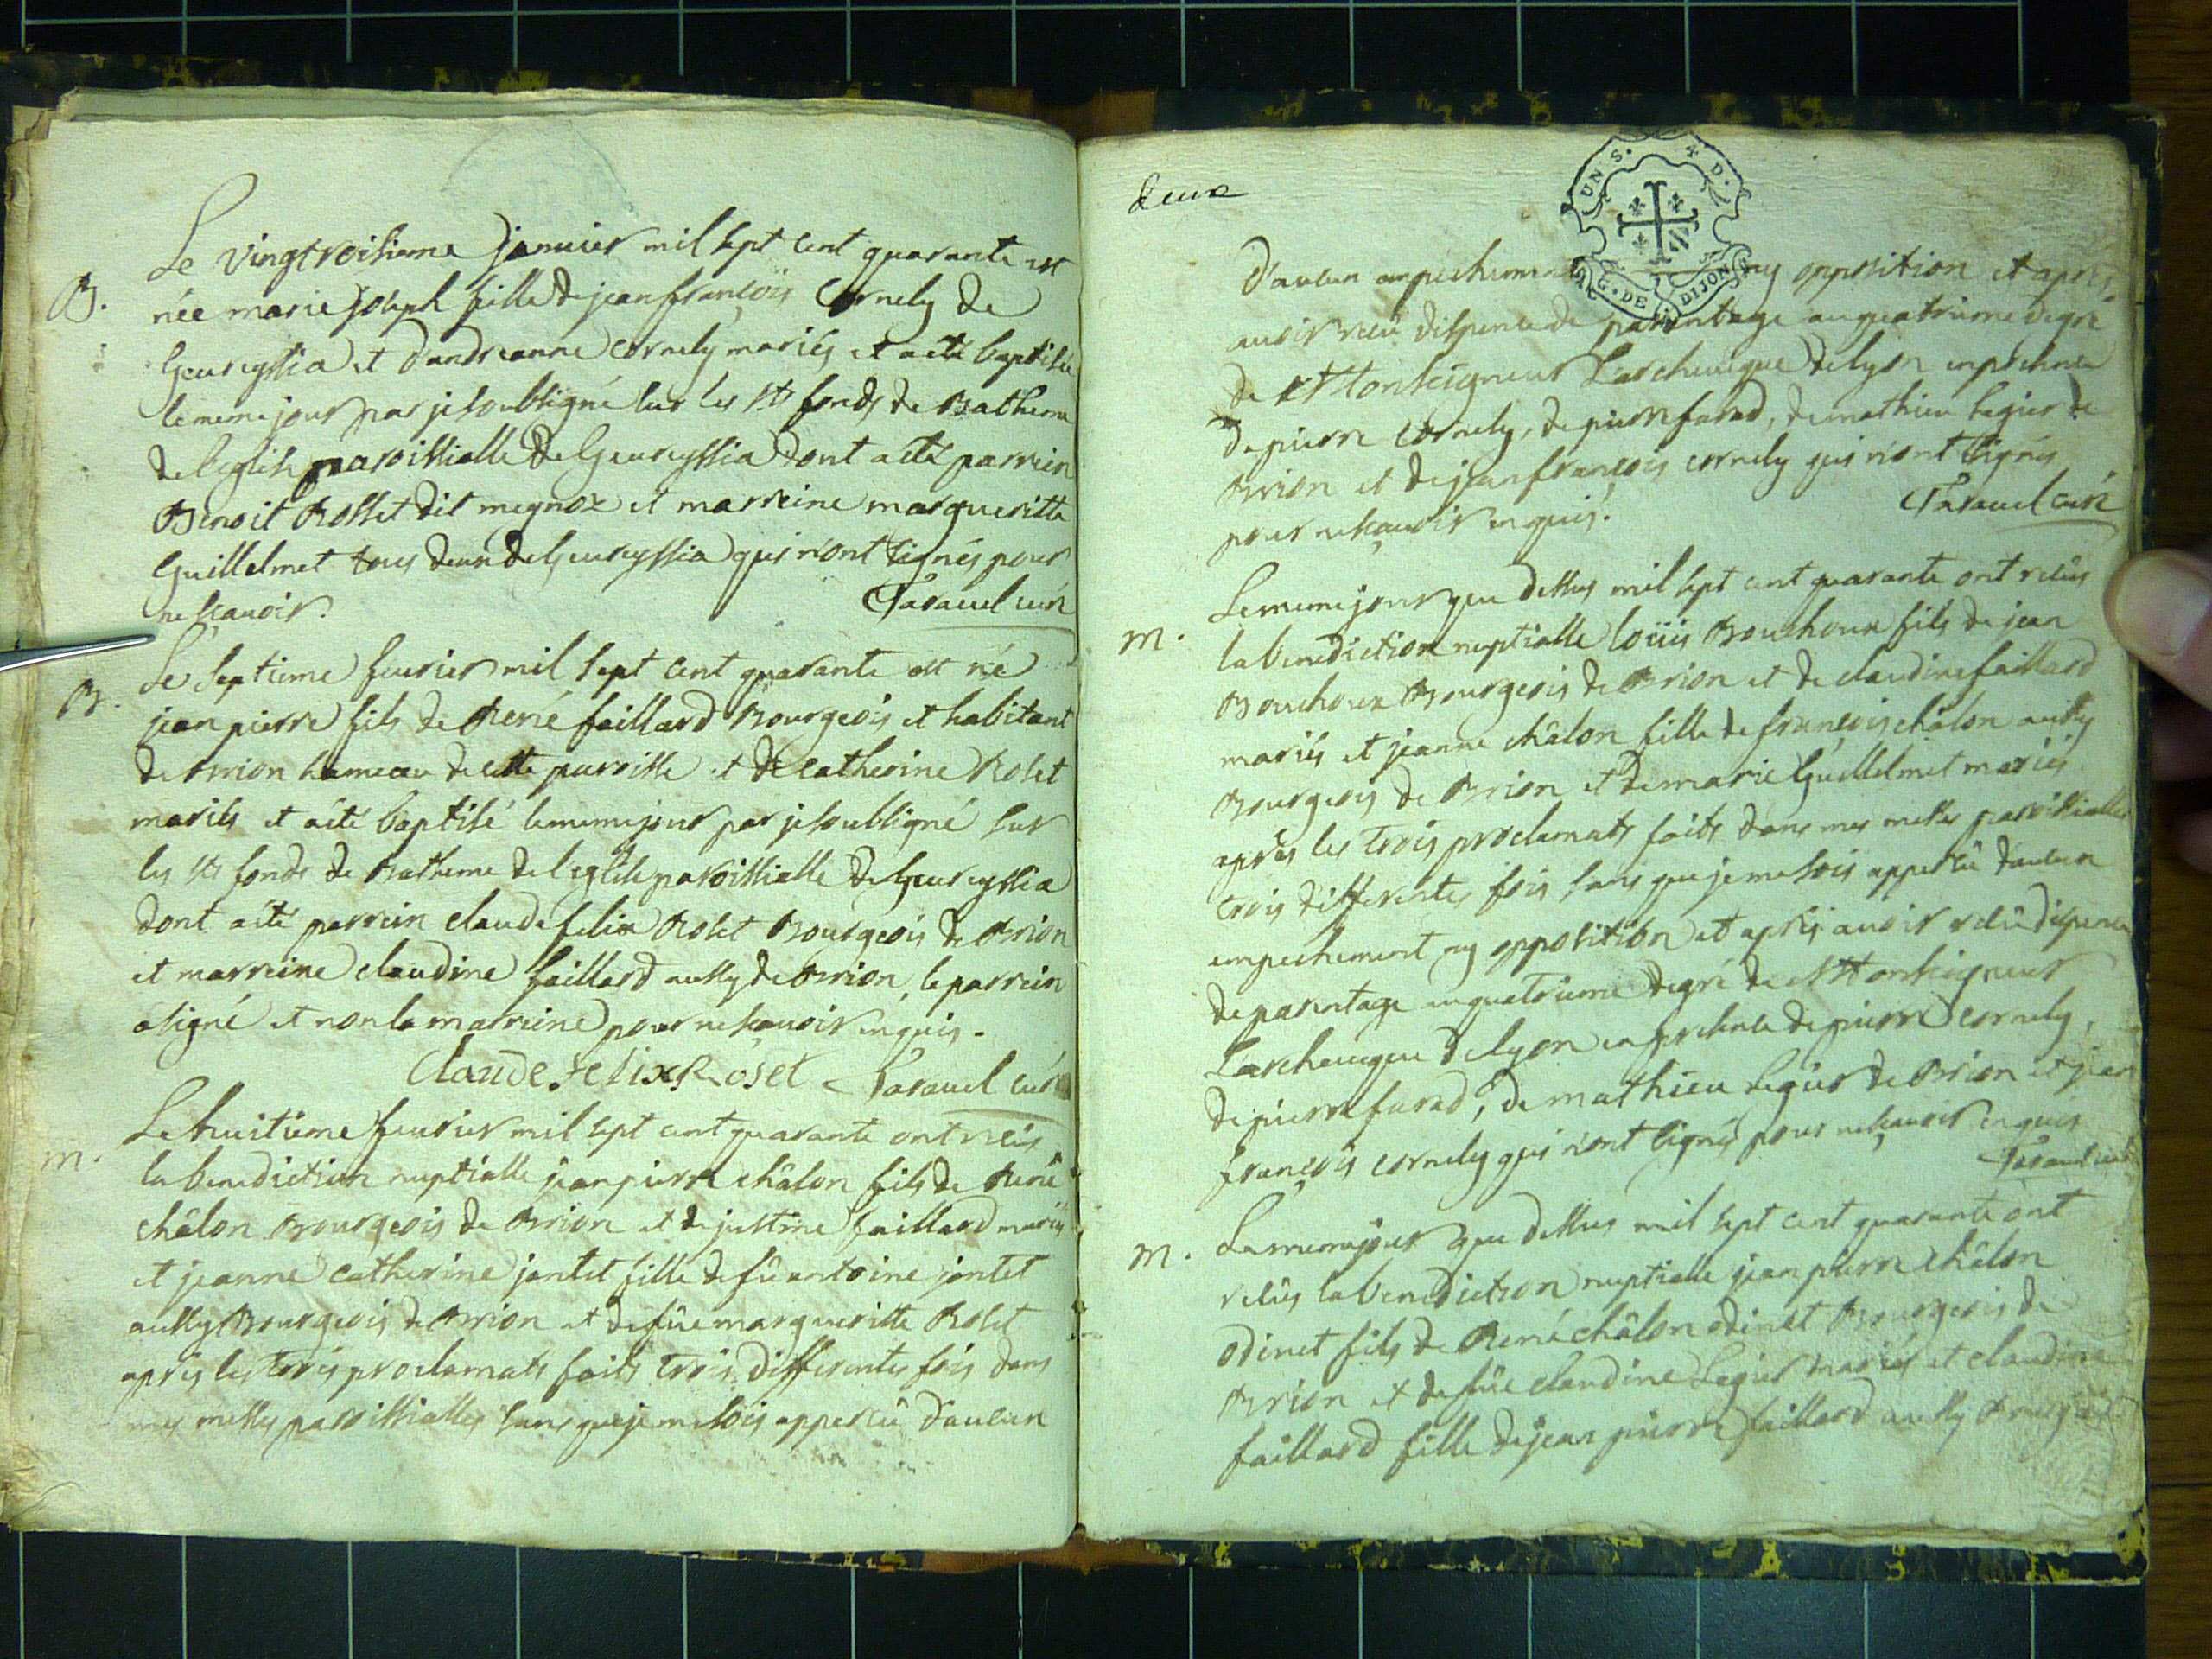 Le vingtroisieme janvier mil sept cent quarante est
B.
née marie joseph fille de jean françois Cornely de
Geureyssia et d'andreanne cornely mariés et a eté baptisée
le meme jour par je soubsigné sur les sts fonds de Batheme
de l'eglise paroissialle de Geureyssia dont a eté parrein
Benoit Rosset dit megnoz et marreine margueritte
Guillelmet tous deux de Geureyssia qui n'ont signés pour
ne sçavoir.
curé
Le septieme fevrier mil sept cent quarante est né
B.
jean pierre fils de René faillard Bourgeois et habitant
de Brion hameau de cette parroisse et de catherine Roset
mariés et a eté baptisé le meme jour par je soubsigné sur
les sts fonds de Batheme de l'eglise paroissialle de Geureyssia
dont a eté parrein claude felix Roset Bourgeois de Brion
et marreine claudine faillard aussy de Brion, le parrein
a signé et non la marreine pour ne scavoir enquis.
Claude Felix Roset
curé
Le huitieme fevrier mil sept cent quarante ont reçus
m.
la benediction nuptialle jean pierre châlon fils de René
châlon Bourgeois de Brion et de justine faillard mariés
et jeanne catherine jantet fille de fû antoine jantet
aussy Bourgeois de Brion et de fûe margueritte Roset
après les trois proclamats faits trois differentes fois dans
mes messes paroissialles sans que je me sois apperçû d'aucun
deux
UNS. 4 D.
G. DE DIJON
d'aucun empechement ny opposition et apres
avoir recû dispence de parentage au quatrieme degré
de Monseigneur L'archeveque de lyon en presence
de pierre cornely, de pierre farad, de mathieu Legier de
Brion et de jean françois cornely qui n'ont signés
pour ne sçavoir enquis.
curé
Le meme jour que dessus mil sept cent quarante ont reçûs
m.
la benediction nuptialle loüis Bouchoux fils de jean
Bouchoux Bourgeois de Brion et de claudine faillard
mariés et jeanne châlon fille de françois châlon aussy
Bourgeois de Brion et de marie Guillelmet mariés
après les trois proclamats faits dans mes messes paroissialles
trois differentes fois sans que je me sois apperçû d'aucun
empechement ny opposition et après avoir reçû dispence
de parentage au quatrieme degré de Monseigneur
L'archeveque de lyon en presence de pierre cornely,
de pierre farad, de mathieu Legier de Brion et jean
françois cornely qui n'ont signés pour ne sçavoir enquis
curé
Le meme jour que dessus mil sept cent quarante ont
m.
reçûs la benediction nuptialle jean pierre châlon
odinet fils de René châlon odinet Bourgeois de
Brion et de fûe claudine Legier mariés et claudine
faillard fille de jean pierre faillard aussy Bourgeois